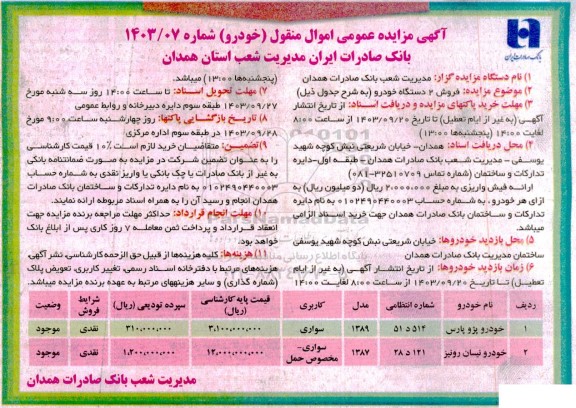 آگهی مزایده عمومی اموال منقول (خودرو) شماره ۱۴۰۳/۰۷
بانک صادرات ایران مدیریت شعب استان همدان
بانک صادرات ایران
۱) نام دستگاه مزایده گزار: مدیریت شعب بانک صادرات همدان
۲) موضوع مزایده: فروش ۲ دستگاه خودرو (به شرح جدول ذیل)
۳) مهلت خرید پاکتهای مزایده و دریافت اسناد: از تاریخ انتشار
آگهی (به غیر از ایام تعطیل) تا تاریخ ۱۴۰۳/۰۹/۲۰ از ساعت ۸:۰۰
لغایت ۱۴:۰۰ (پنجشنبه‌ها ۱۳:۰۰)
۴) محل دریافت اسناد: همدان- خیابان شریعتی نبش کوچه شهید
یوسفی - مدیریت شعب بانک صادرات همدان - طبقه اول-دایره
تدارکات و ساختمان (شماره تماس ۳۲۵۱۰۷۰۹-۰۸۱)
ارائه فیش واریزی به مبلغ ۲،۰۰۰،۰۰۰ ریال (دو میلیون ریال) به
ازای هر خودرو، به شماره حساب ۰۱۰۲۴۹۰۴۴۰۰۰۳ به نام دایره
تدارکات و ساختمان بانک صادرات همدان جهت خرید اسناد الزامی
میباشد.
۵) محل بازدید خودروها: خیابان شریعتی نبش کوچه شهید یوسفی
ساختمان مدیریت بانک صادرات همدان
۶) زمان بازدید خودروها: از تاریخ انتشار آگهی (به غیر از ایام
تعطیل) تا تاریخ ۱۴۰۳/۰۹/۲۰ از ساعت ۸:۰۰ لغایت ۱۴:۰۰
(پنجشنبه‌ها ۱۳:۰۰) میباشد.
۷) مهلت تحویل اسناد: تا ساعت ۱۴:۰۰ روز سه شنبه مورخ
۱۴۰۳/۰۹/۲۷ طبقه سوم دایره دبیرخانه و روابط عمومی
۸) تاریخ بازگشایی پاکتها: روز چهارشنبه ساعت ۹:۰۰ مورخ
۱۴۰۳/۰۹/۲۸ در طبقه سوم اداره مرکزی
۹) تضمین: متقاضیان خرید لازم است ۱۰٪ قیمت کارشناسی
را به عنوان تضمین شرکت در مزایده به صورت ضمانتنامه بانکی
به غیر از بانک صادرات یا چک بانکی یا واریز نقدی به شماره حساب
۰۱۰۲۴۹۰۴۴۰۰۰۳ به نام دایره تدارکات و ساختمان بانک صادرات
همدان انجام و رسید آن را به همراه اسناد مربوطه ارائه نمایند.
۱۰) مهلت انجام قرارداد: حداکثر مهلت مراجعه برنده مزایده جهت
انعقاد قرارداد و پرداخت ثمن معامله ۷ روز کاری پس از ابلاغ بانک
خواهد بود.
۱۱) هزینه‌ها: کلیه هزینه‌ها از قبیل حق الزحمه کارشناسی، نشر آگهی،
هزینه‌های مرتبط با دفترخانه اسناد رسمی، تغییر کاربری، تعویض پلاک
(شماره گذاری) و سایر هزینه‌های مرتبط به عهده برنده مزایده میباشد.
ردیف نام خودرو شماره انتظامی مدل کاربری قیمت پایه کارشناسی (ریال) سپرده تودیعی (ریال) شرایط فروش وضعیت
۱ خودرو پژو پارس ۵۱۴ د ۵۱ ۱۳۸۹ سواری ۳،۱۰۰،۰۰۰،۰۰۰ ۳۱۰،۰۰۰،۰۰۰ نقدی موجود
۲ خودرو نیسان رونیز ۱۲۱ د ۲۸ ۱۳۸۷ سواری- مخصوص حمل ۱۲،۰۰۰،۰۰۰،۰۰۰ ۱،۲۰۰،۰۰۰،۰۰۰ نقدی موجود
مدیریت شعب بانک صادرات همدان